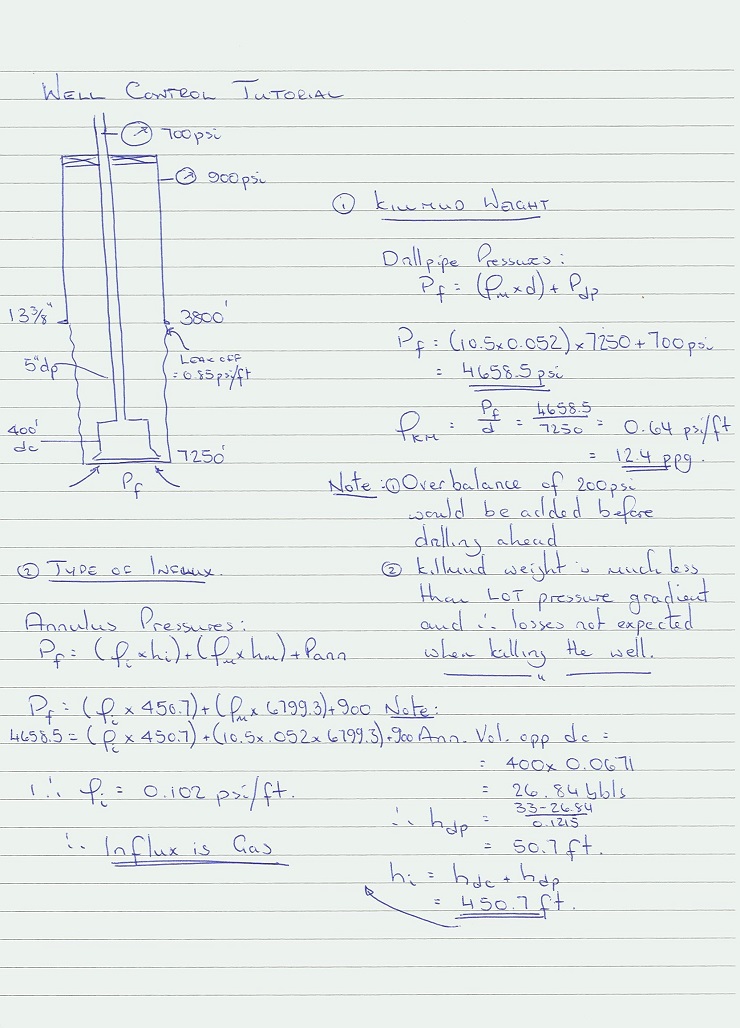 WELL CONTROL TUTORIAL
700psi
900psi
13 3/8"
3800'
LEAK OFF
= 0.85psi/ft
5"dp
400'
dc
7250'
Pf
① KILLMUD WEIGHT
Drillpipe Pressures:
Pf = (ρm x d) + Pdp
Pf = (10.5x0.052) x 7250 + 700psi
= 4658.5 psi
ρKM = Pf/d = 4658.5/7250 = 0.64 psi/ft
= 12.4 ppg.
Note: ① Overbalance of 200psi
would be added before
drilling ahead
② killmud weight is much less
than LOT pressure gradient
and ∴ losses not expected
when killing the well.
② TYPE OF INFLUX.
Annulus Pressures:
Pf = (ρi x hi) + (ρm x hm) + Pann
Pf = (ρi x 450.7) + (ρm x 6799.3) + 900
4658.5 = (ρi x 450.7) + (10.5 x .052 x 6799.3) + 900
∴ ρi = 0.102 psi/ft.
∴ Influx is Gas
Note:
Ann. Vol. opp dc =
= 400 x 0.0671
= 26.84 bbls
∴ hdp = 33-26.84/0.1215
= 50.7 ft.
hi = hdc + hdp
= 450.7 ft.